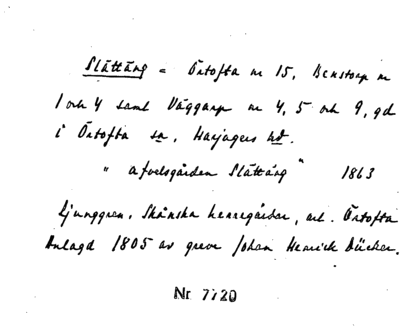 Slättäng = Örtofta nr 15, Benstorp nr
1 och 4 samt Väggarp nr 4, 5 och 9, gd
i Örtofta sn, Harjagers hd.
" afvelsgården Slättäng " 1863
Ljunggren, Skånska herregårdar, art. Örtofta
Anlagd 1805 av greve Johan Henrick Dücker.
Nr 7720